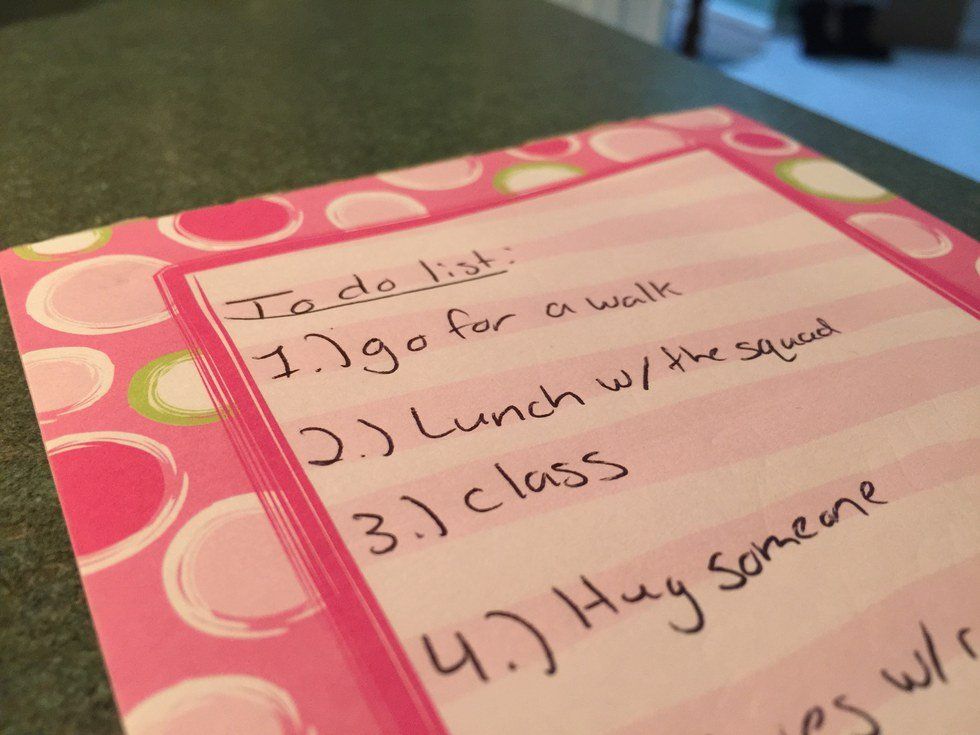 To do list:
1.) go for a walk
2.) Lunch w/ the squad
3.) class
4.) Hug someone
w/